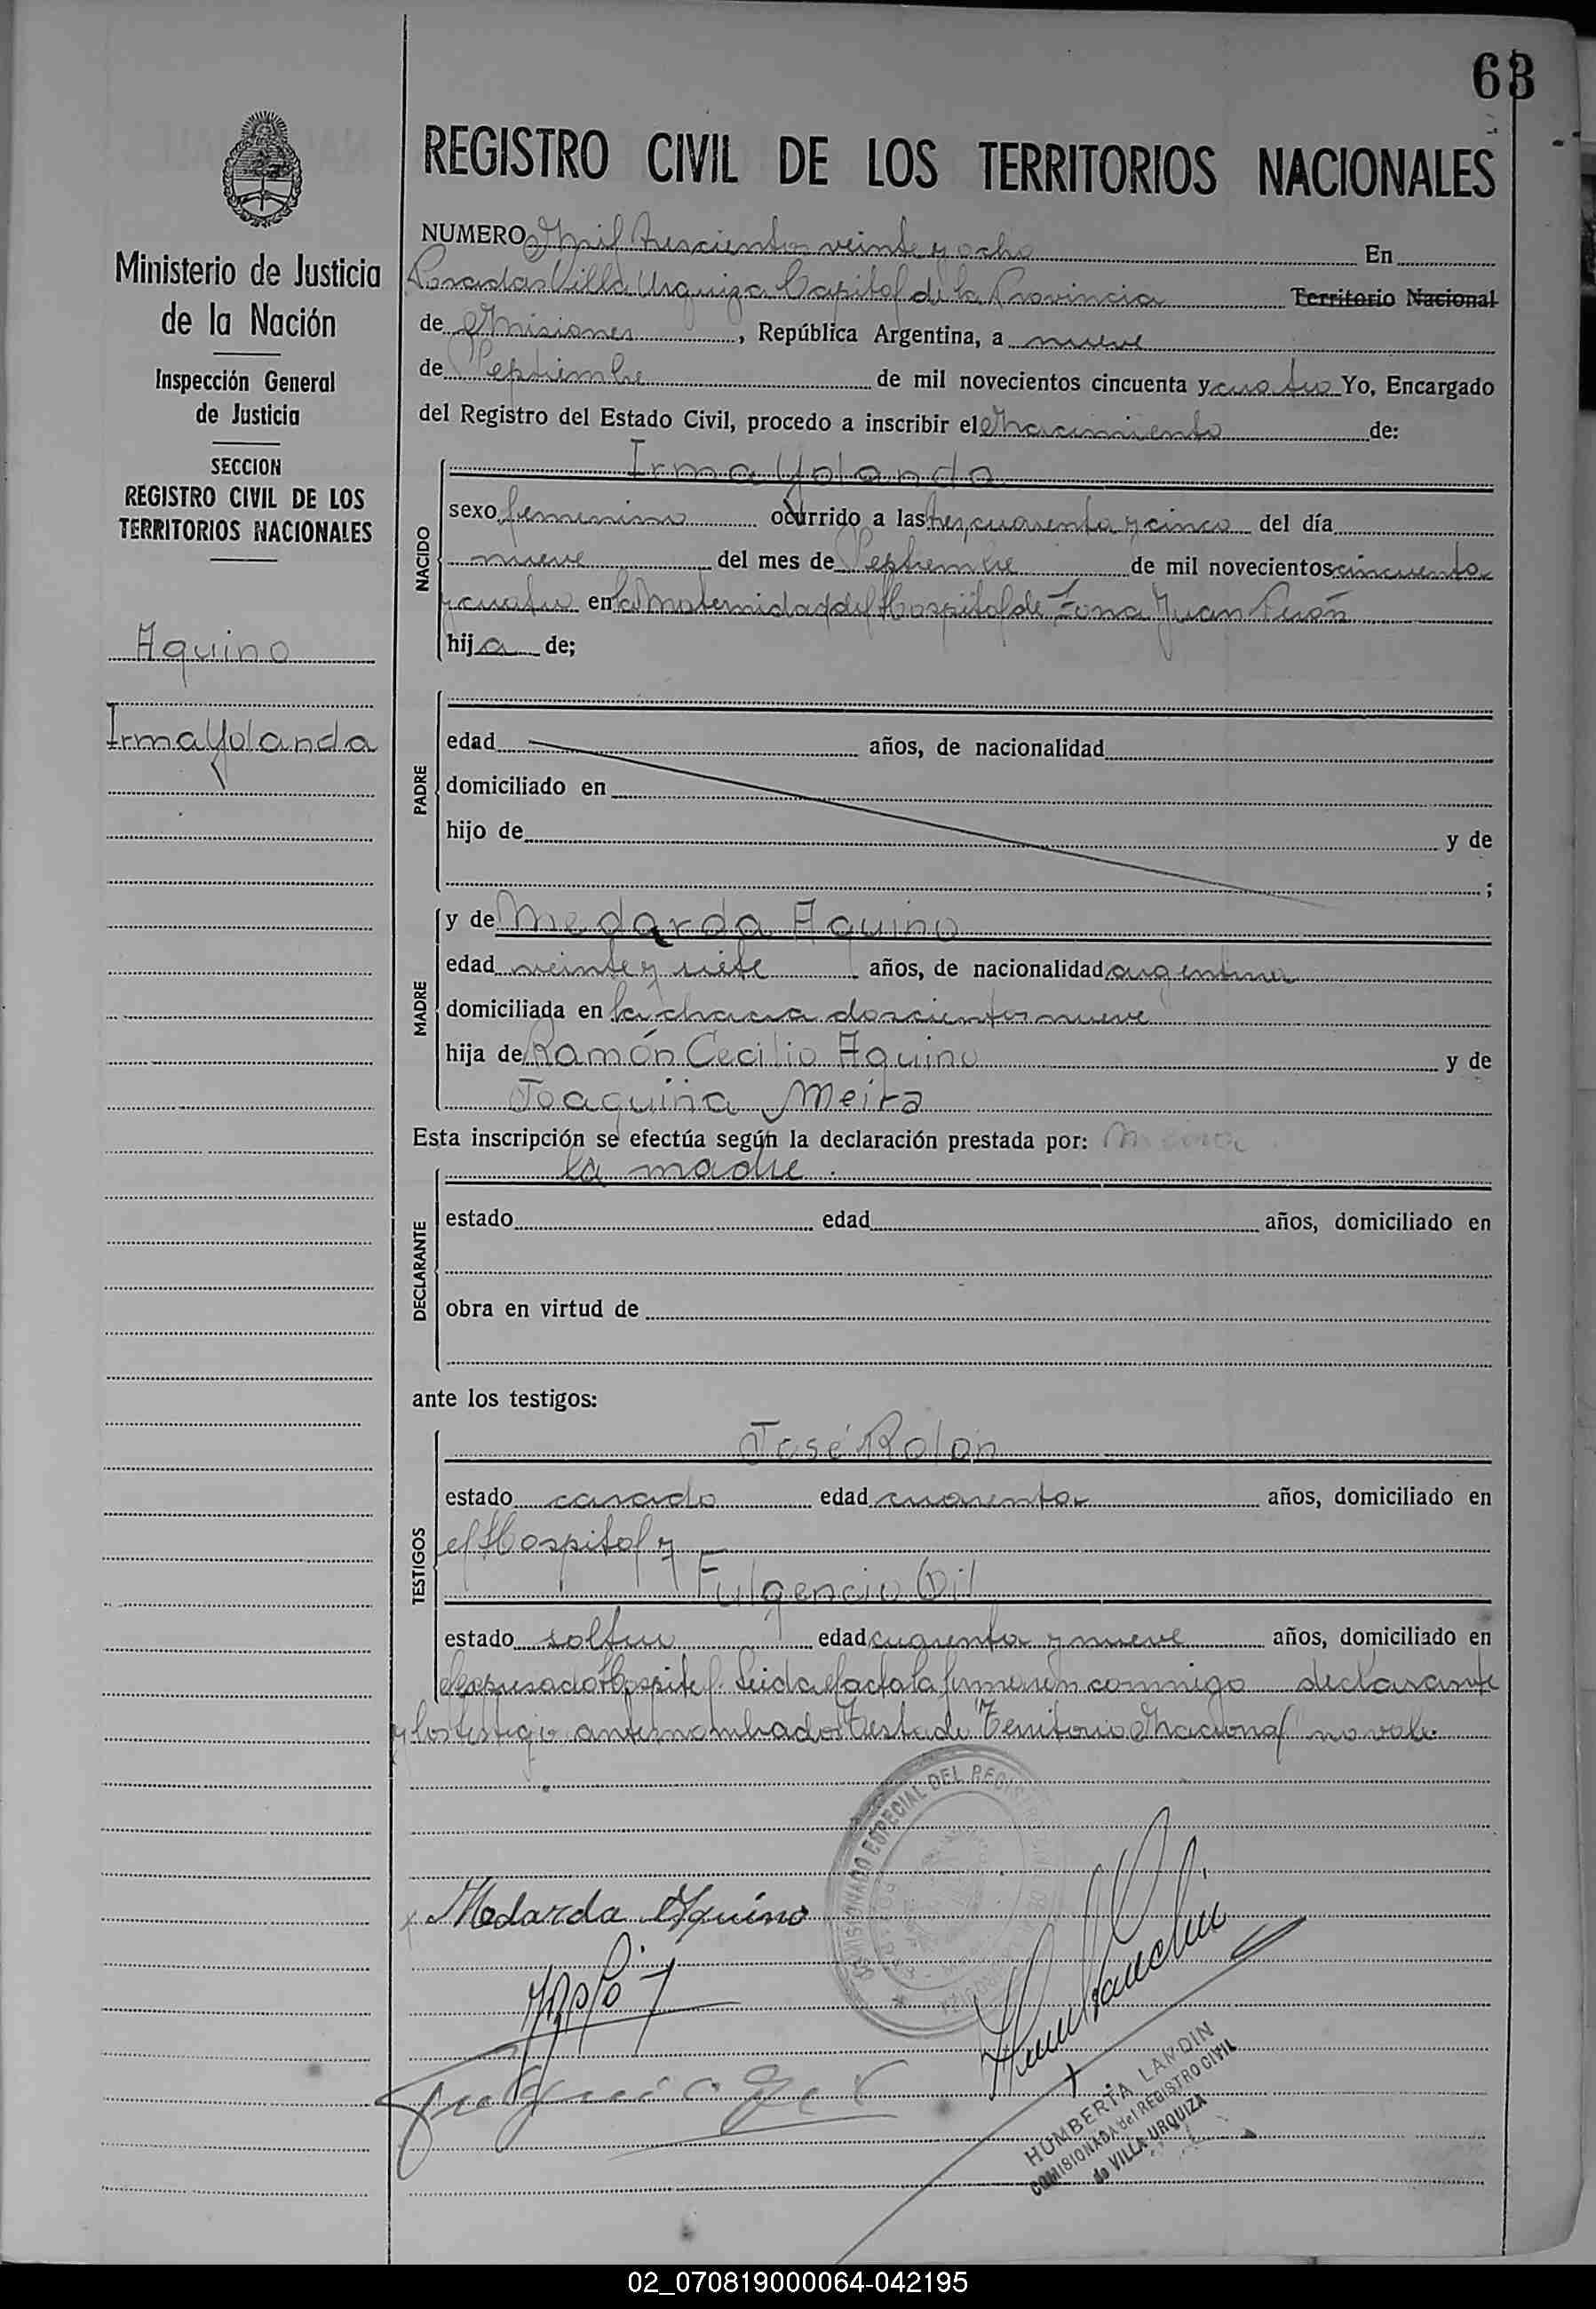 63
REGISTRO CIVIL DE LOS TERRITORIOS NACIONALES
Ministerio de Justicia
de la Nación
Inspección General
de Justicia
SECCION
REGISTRO CIVIL DE LOS
TERRITORIOS NACIONALES
Aquino
Irma Yolanda
NUMERO Mil trescientos veinte y ocho En
Posadas Villa Urquiza Capital de la Provincia Territorio Nacional
de Misiones, República Argentina, a nueve
de Septiembre de mil novecientos cincuenta y cuatro Yo, Encargado
del Registro del Estado Civil, procedo a inscribir el Nacimiento de:
NACIDO
Irma Yolanda
sexo femenino ocurrido a las tres, cuarenta y cinco del día
nueve del mes de Septiembre de mil novecientos cincuenta
y cuatro en la Maternidad del Hospital de Zona Juan Perón
hija de;
PADRE
edad años, de nacionalidad
domiciliado en
hijo de y de
;
MADRE
y de Medarda Aquino
edad veinte y siete años, de nacionalidad argentina
domiciliada en la chacra doscientos nueve
hija de Ramón Cecilio Aquino y de
Joaquina Meira
Esta inscripción se efectúa según la declaración prestada por:
DECLARANTE
la madre.
estado edad años, domiciliado en
obra en virtud de
ante los testigos:
TESTIGOS
José Rolón
estado casado edad cuarenta años, domiciliado en
el Hospital y
Fulgencio Gil
estado soltero edad cuarenta y nueve años, domiciliado en
el expresado Hospital. Leida el acta la firmaron conmigo declarante
y los testigos antes nombrados Testado "Territorio Nacional" no vale.
COMISIONADO ESPECIAL DEL REGISTRO
Medarda Aquino
HUMBERTA LANDIN
COMISIONADA del REGISTRO CIVIL
de VILLA URQUIZA
02_070819000064-042195